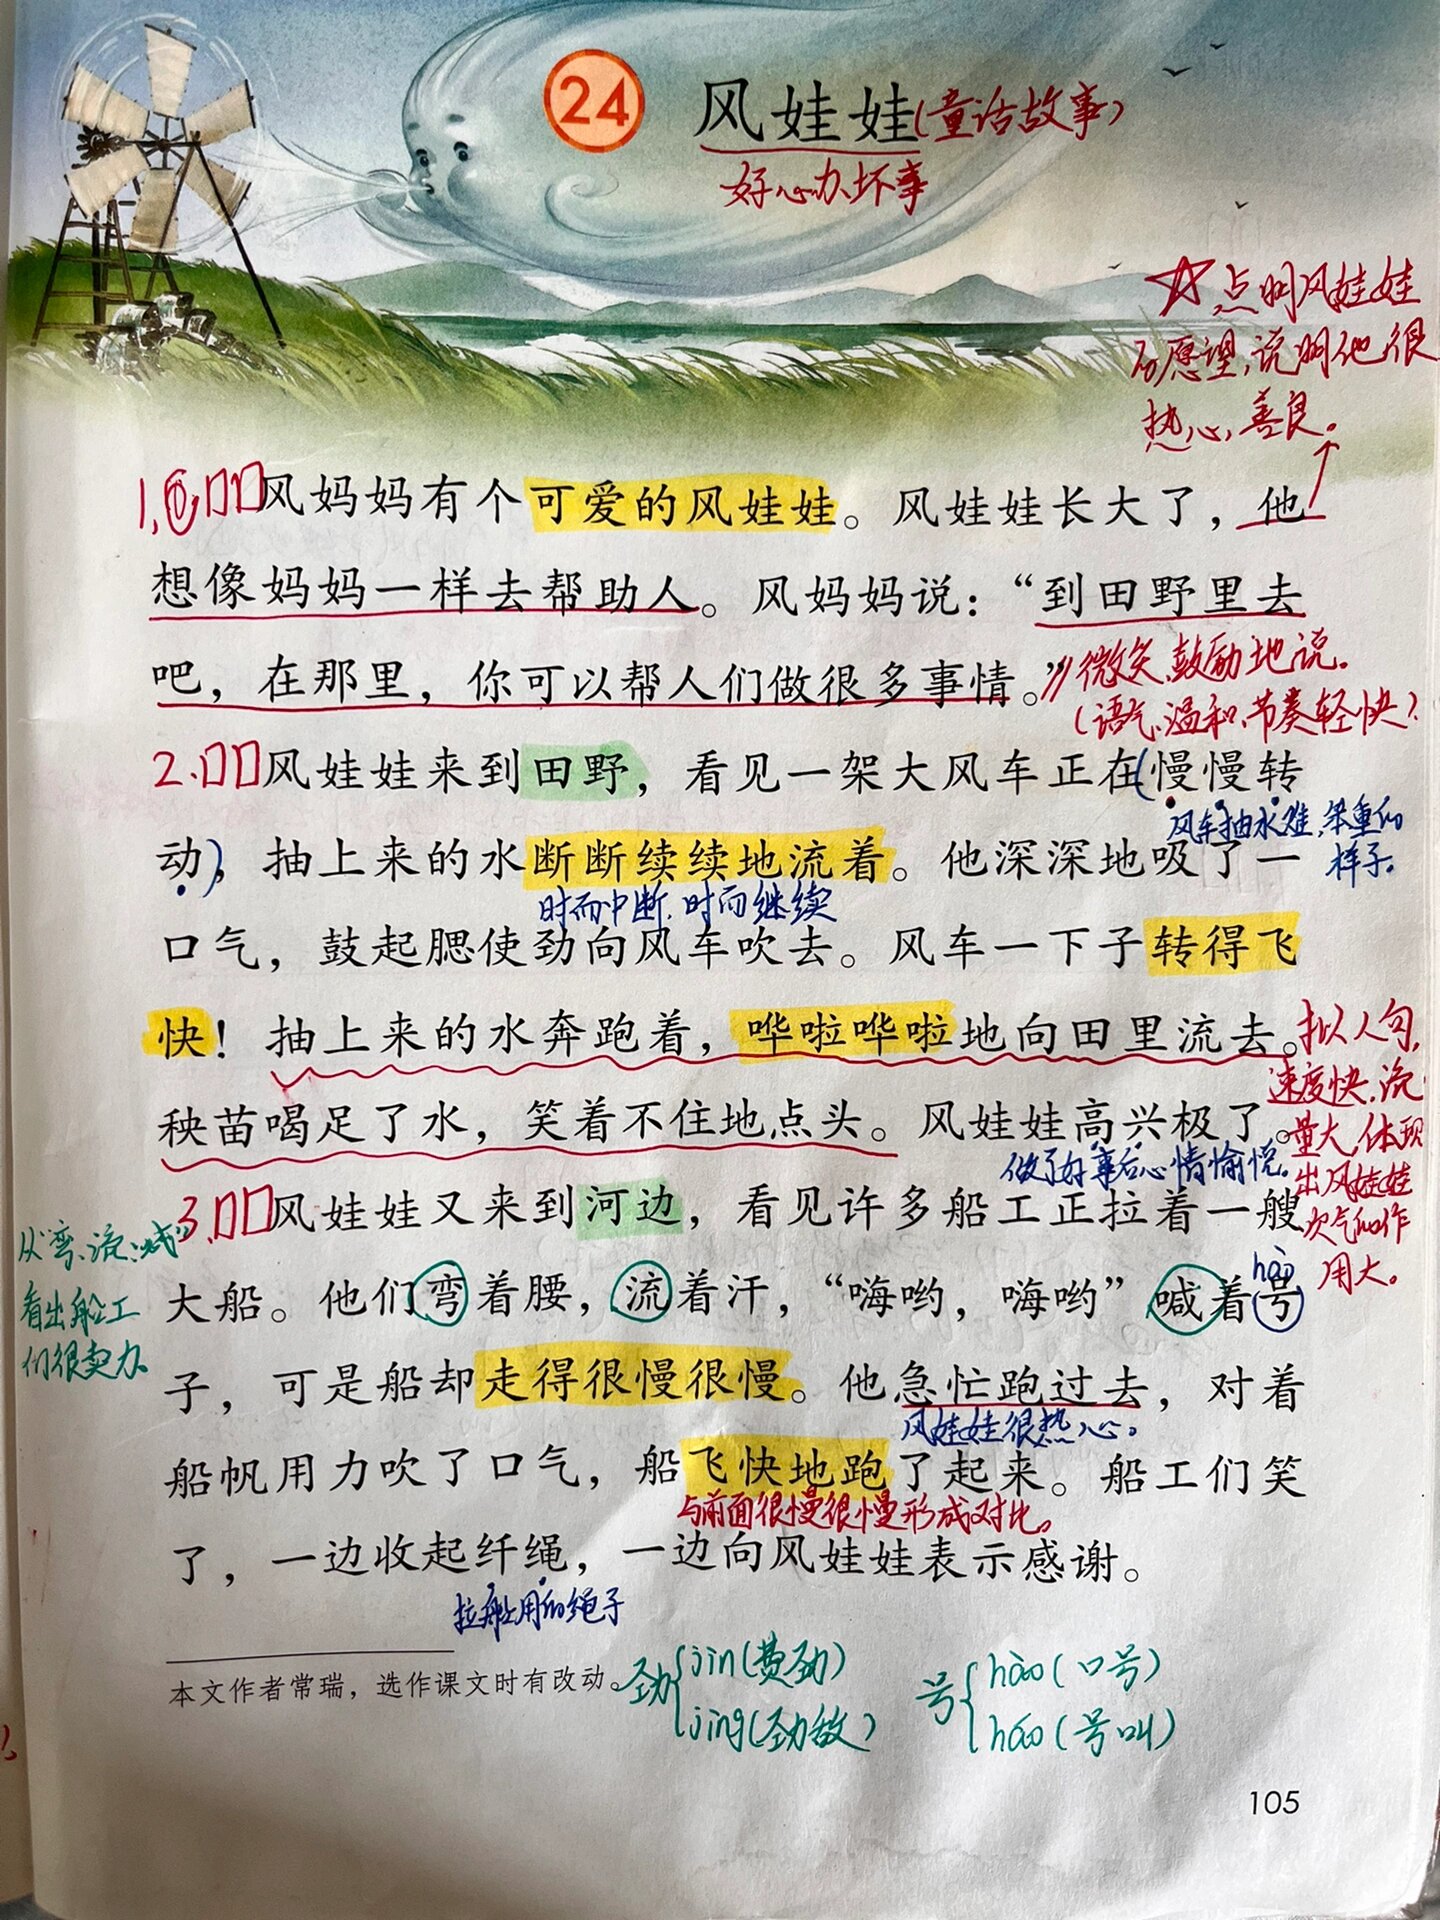 24 风娃娃(童话故事)
好心办坏事
☆点明风娃娃
的愿望,说明他很
热心,善良。
1.①风妈妈有个可爱的风娃娃。风娃娃长大了，他
想像妈妈一样去帮助人。风妈妈说：“到田野里去
吧，在那里，你可以帮人们做很多事情。”
微笑、鼓励地说.
(语气、温和、节奏轻快).
2.风娃娃来到田野，看见一架大风车正在(慢慢转
风车抽水难,笨重的
样子.
动)，抽上来的水断断续续地流着。他深深地吸了一
时而中断.时而继续
口气，鼓起腮使劲向风车吹去。风车一下子转得飞
快！抽上来的水奔跑着，哗啦哗啦地向田里流去。
拟人句,
速度快,流
量大,体现
出风娃娃
吹气的作
用大。
秧苗喝足了水，笑着不住地点头。风娃娃高兴极了。
做了好事后心情愉悦。
3.风娃娃又来到河边，看见许多船工正拉着一艘
从“弯、流、喊”
看出船工
们很卖力.
hào
大船。他们弯着腰，流着汗，“嗨哟，嗨哟”喊着号
子，可是船却走得很慢很慢。他急忙跑过去，对着
风娃娃很热心。
船帆用力吹了口气，船飞快地跑了起来。船工们笑
与前面很慢很慢形成对比。
了，一边收起纤绳，一边向风娃娃表示感谢。
拉船用的绳子
本文作者常瑞，选作课文时有改动。
劲{jìn(费劲)
jìng(劲敌)
号{hào(口号)
háo(号叫)
105